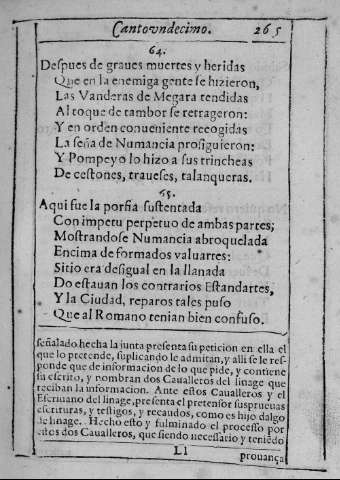 Canto vndecimo. 265
64.
Despues de graues muertes y heridas
Que en la enemiga gente se hizieron,
Las Vanderas de Megara tendidas
Al toque de tambor se retrageron:
Y en orden conueniente recogidas
La seña de Numancia prosiguieron:
Y Pompeyo lo hizo a sus trincheas
De cestones, traueses, talanqueras.
65.
Aqui fue la porfia sustentada
Con impetu perpetuo de ambas partes;
Mostrandose Numancia abroquelada
Encima de formados valuartes:
Sitio era desigual en la llanada
Do estauan los contrarios Estandartes,
Y la Ciudad, reparos tales puso
Que al Romano tenian bien confuso.
señalado, hecha la junta presenta su peticion en ella el
que lo pretende, suplicando le admitan, y alli se le res-
ponde que de informacion de lo que pide, y contiene
su escrito, y nombran dos Caualleros del linage que
reciban la informacion. Ante estos Caualleros y el
Escriuano del linage, presenta el pretensor sus prueuas
escrituras, y testigos, y recaudos, como es hijo dalgo
de linage. Hecho esto y fulminado el processo por
estos dos Caualleros, que siendo necessario y teniẽdo
Ll
prouança